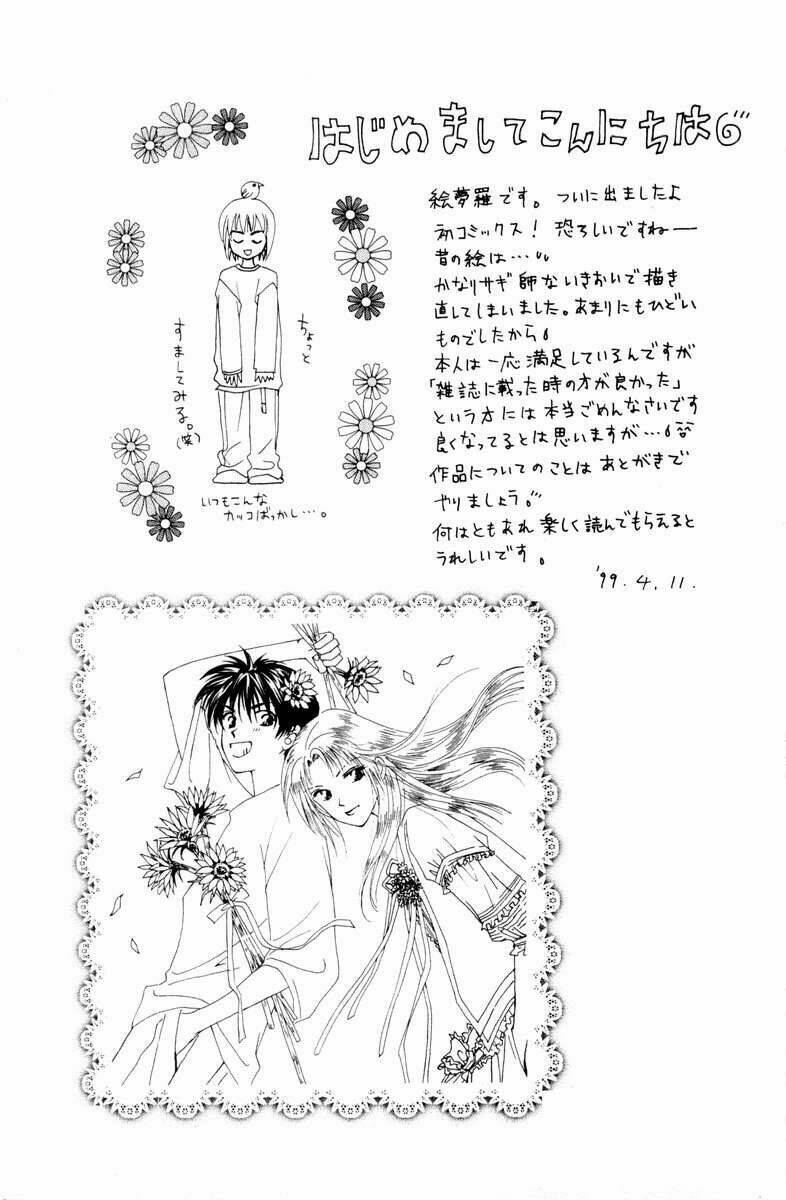 はじめましてこんにちは
絵夢羅です。ついに出ましたよ
初コミックス！恐ろしいですねー
昔の絵は…
かなりサギ師ないきおいで描き
直してしまいました。あまりにもひどい
ものでしたから
本人は一応満足しているんですが
「雑誌に載った時の方が良かった」
という方には本当ごめんなさいです
良くなってるとは思いますが…
作品についてのことはあとがきで
やりましょう。
何はともあれ楽しく読んでもらえると
うれしいです。
'99.4.11.
ちょっと
すましてみる。(笑)
いつもこんな
カッコばっかし…。